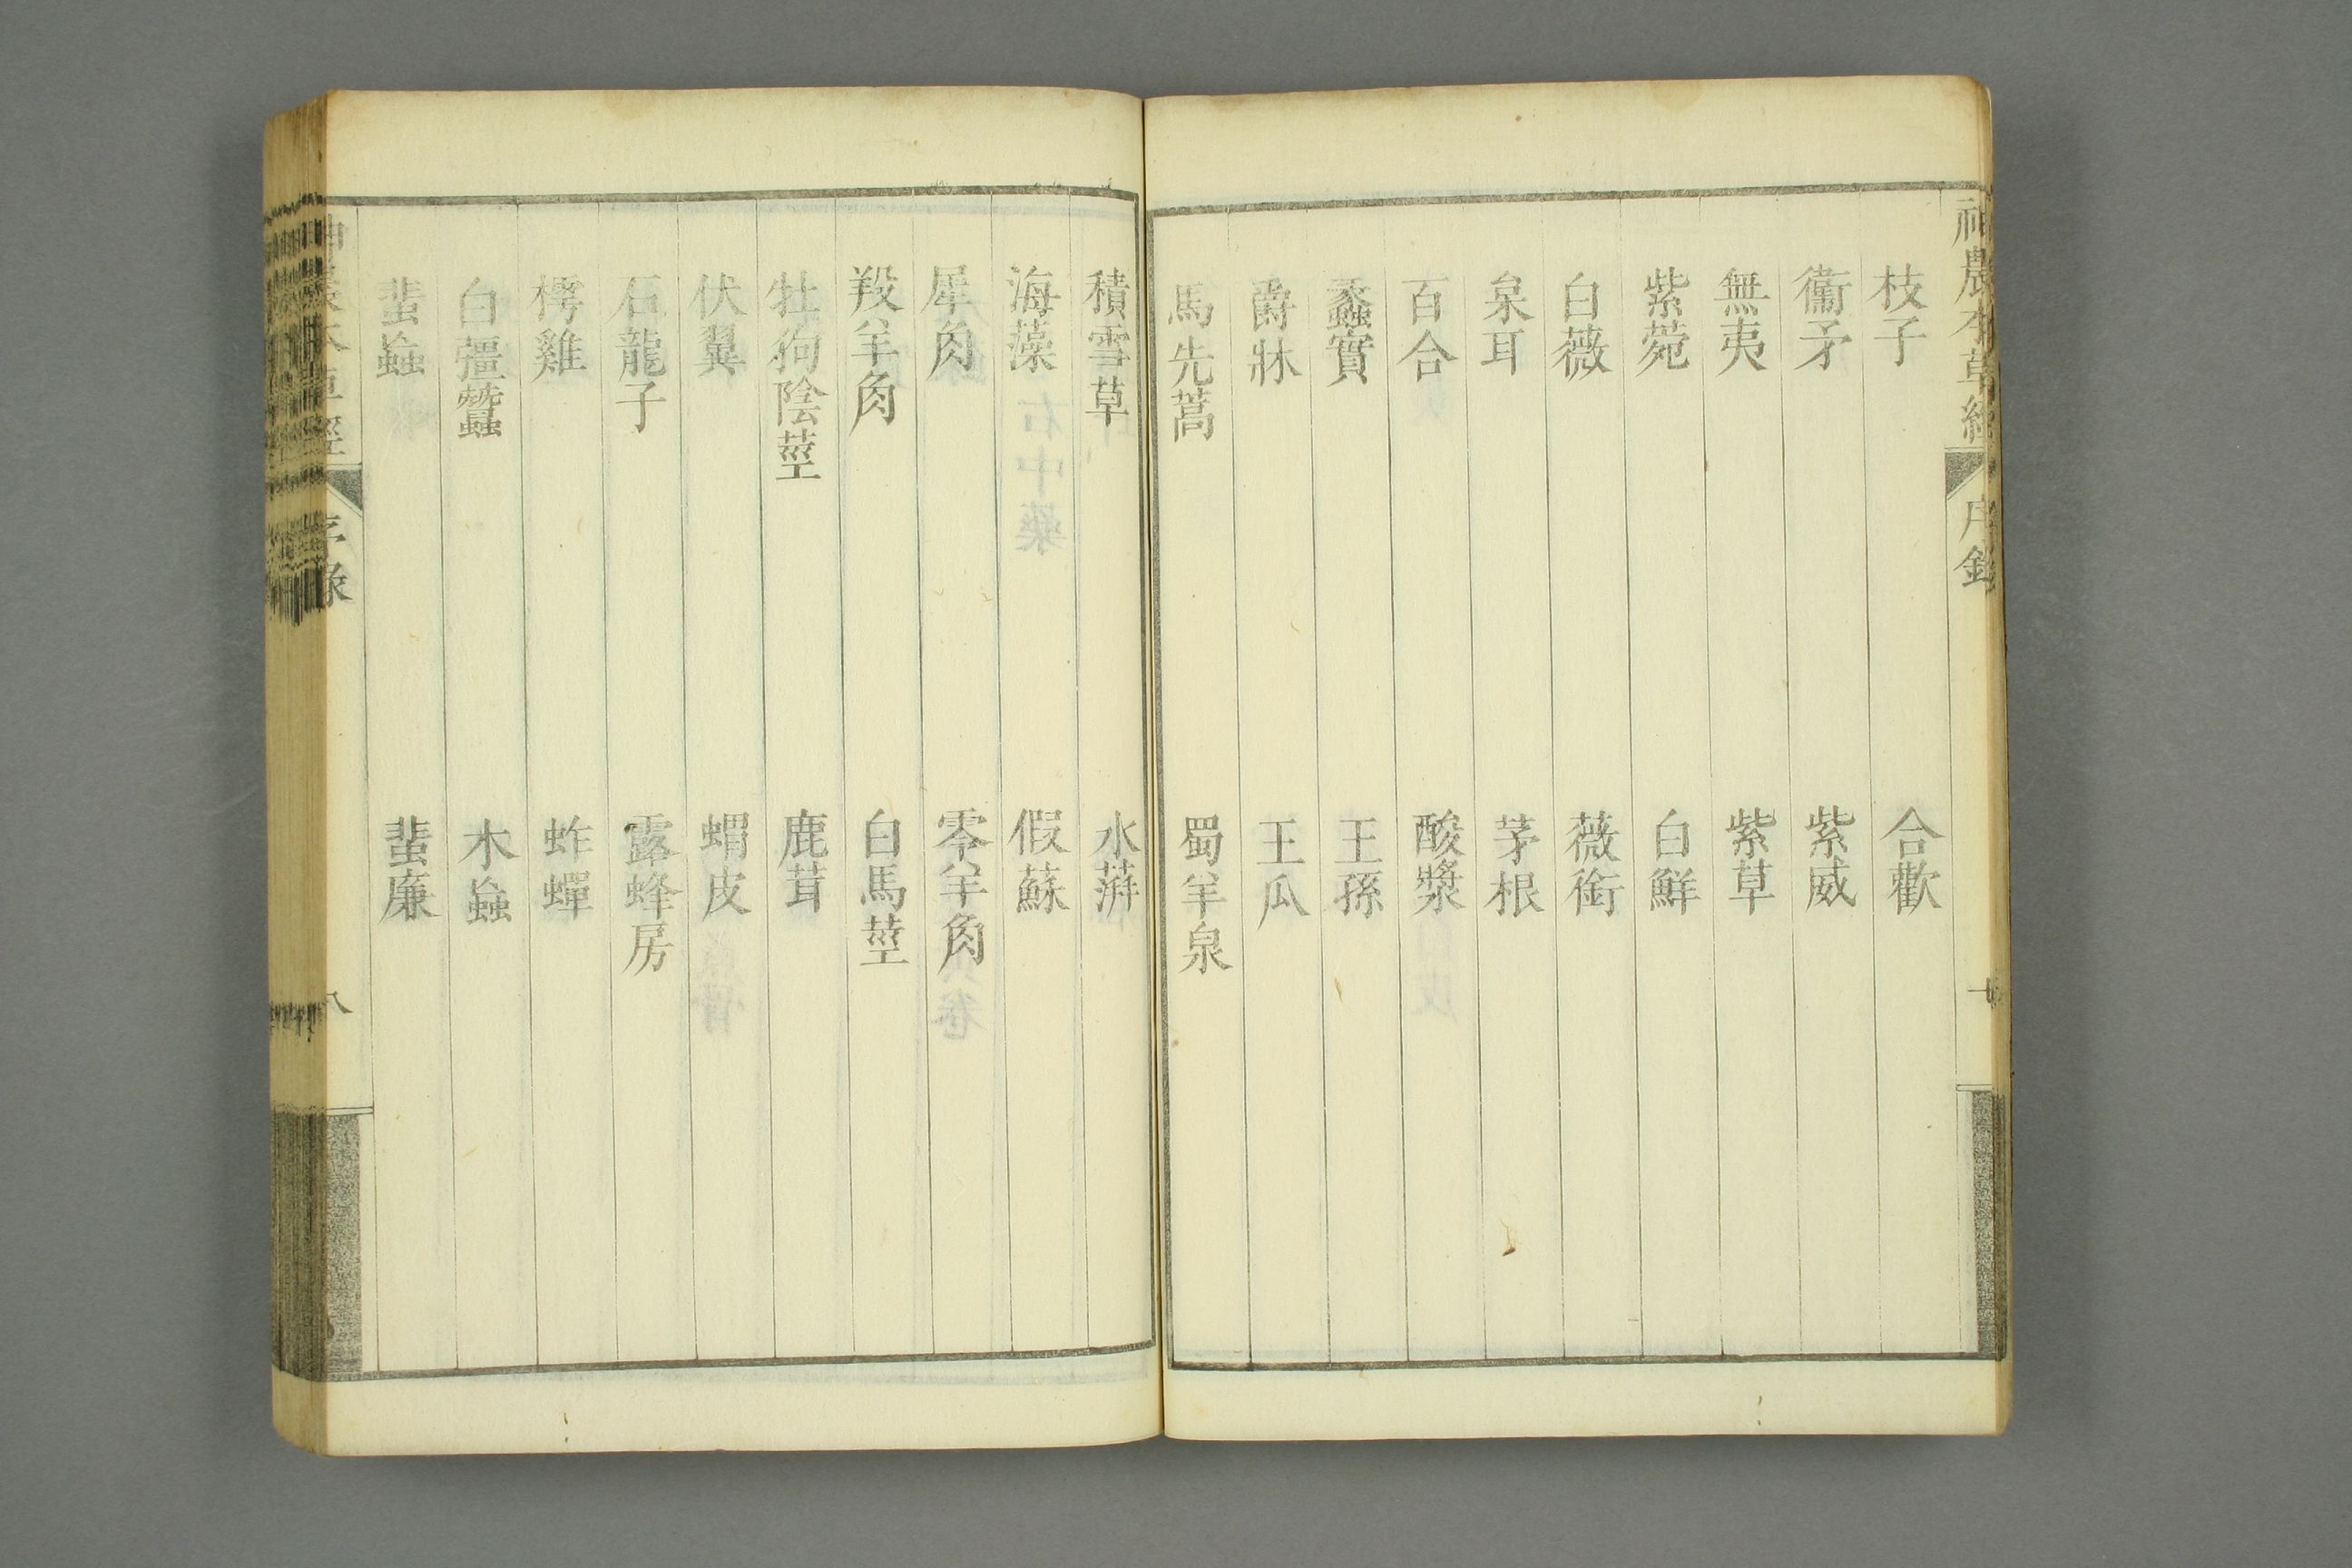 神農本草經 序錄 七
枝子 合歡
衞矛 紫威
無夷 紫草
紫菀 白鮮
白薇 薇銜
枲耳 茅根
百合 酸漿
蠡實 王孫
爵牀 王瓜
馬先蒿 蜀羊泉
積雪草 水蓱
海藻 假蘇
犀角 零羊角
羖羊角 白馬莖
牡狗陰莖 鹿茸
伏翼 蝟皮
石龍子 露蜂房
樗雞 蚱蟬
白殭蠶 木蝱
蜚蝱 蜚廉
神農本草經 序錄 八